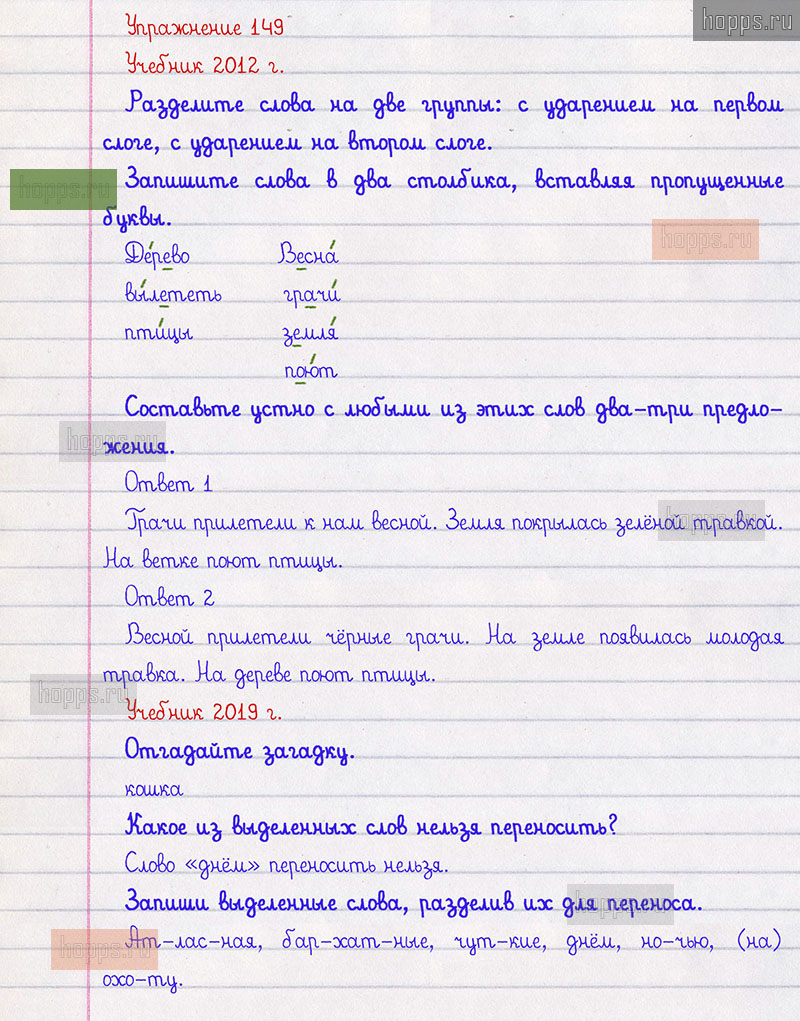 hopps.ru
Упражнение 149
Учебник 2012 г.
Разделите слова на две группы: с ударением на первом
слоге, с ударением на втором слоге.
hopps.ru
Запишите слова в два столбика, вставляя пропущенные
буквы.
hopps.ru
Де́рево Весна́
вы́лететь грачи́
пти́цы земля́
пою́т
Составьте устно с любыми из этих слов два-три предло-
hopps.ru
жения.
Ответ 1
hopps.ru
Грачи прилетели к нам весной. Земля покрылась зелёной травкой.
На ветке поют птицы.
Ответ 2
Весной прилетели чёрные грачи. На земле появилась молодая
травка. На дереве поют птицы.
hopps.ru
Учебник 2019 г.
Отгадайте загадку.
кошка
Какое из выделенных слов нельзя переносить?
Слово «днём» переносить нельзя.
Запиши выделенные слова, разделив их для переноса.
hopps.ru
Ат-лас-ная, бар-хат-ные, чут-кие, днём, но-чью, (на)
hopps.ru
охо-ту.